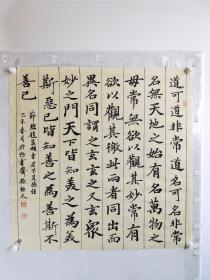 道可道非常道名可名非常
名無天地之始有名萬物之
母常無欲以觀其妙常有
欲以觀其徼此兩者同出而
異名同謂之玄玄之又玄眾
妙之門天下皆知美之為美
斯惡已皆知善之為善斯不
善已
節臨趙孟頫書老子道德經